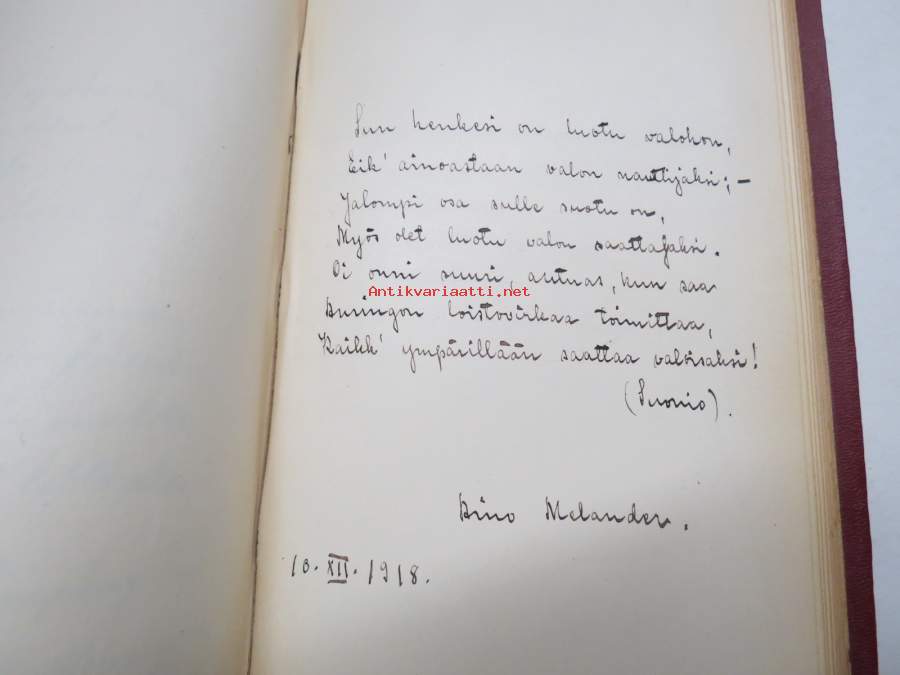 Sun henkesi on luotu valohon,
Eik' ainoastaan valon nauttijaksi; –
Jalompi osa sulle suotu on,
Myös olet luotu valon saattajaksi.
Oi onni suuri, autuas, kun saa
Antikvariaatti.net
Auringon loistovirkaa toimittaa,
Kaikk' ympärillään saattaa valoisaksi!
(Suonio).
Aino Melander.
10. XII. 1918.